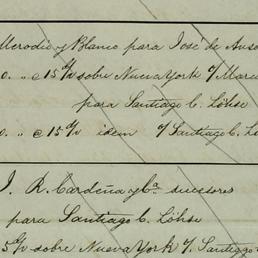 Merodio y Blanco para José de Auso
0. " c 15 d/v sobre Nueva York o/ Marc
para Santiago C. Löhse
0. " c 15 d/v idem o/ Santiago C. L
J. R. Cardeña y Ca. sucesores
para Santiago C. Löhse
5 d/v sobre Nueva York o/. Santiago